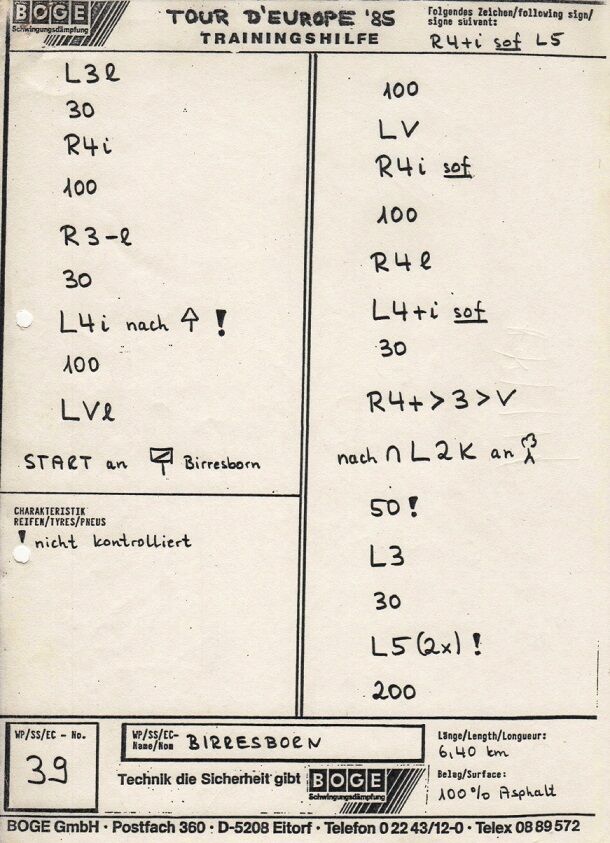 BOGE
Schwingungsdämpfung
TOUR D'EUROPE '85
TRAININGSHILFE
Folgendes Zeichen/following sign/
signe suivant:
R4+i sof L5
L3l
30
R4i
100
R3-l
30
L4i nach ↑ !
100
LVl
START an Birresborn
CHARAKTERISTIK
REIFEN/TYRES/PNEUS
! nicht kontrolliert
100
LV
R4i sof
100
R4l
L4+i sof
30
R4+>3>V
nach ∩ L2K an
50!
L3
30
L5(2x)!
200
WP/SS/EC - No.
39
WP/SS/EC-
Name/Nom BIRRESBORN
Länge/Length/Longueur:
6,40 km
Technik die Sicherheit gibt BOGE
Schwingungsdämpfung
Belag/Surface:
100% Asphalt
BOGE GmbH · Postfach 360 · D-5208 Eitorf · Telefon 0 22 43/12-0 · Telex 08 89 572